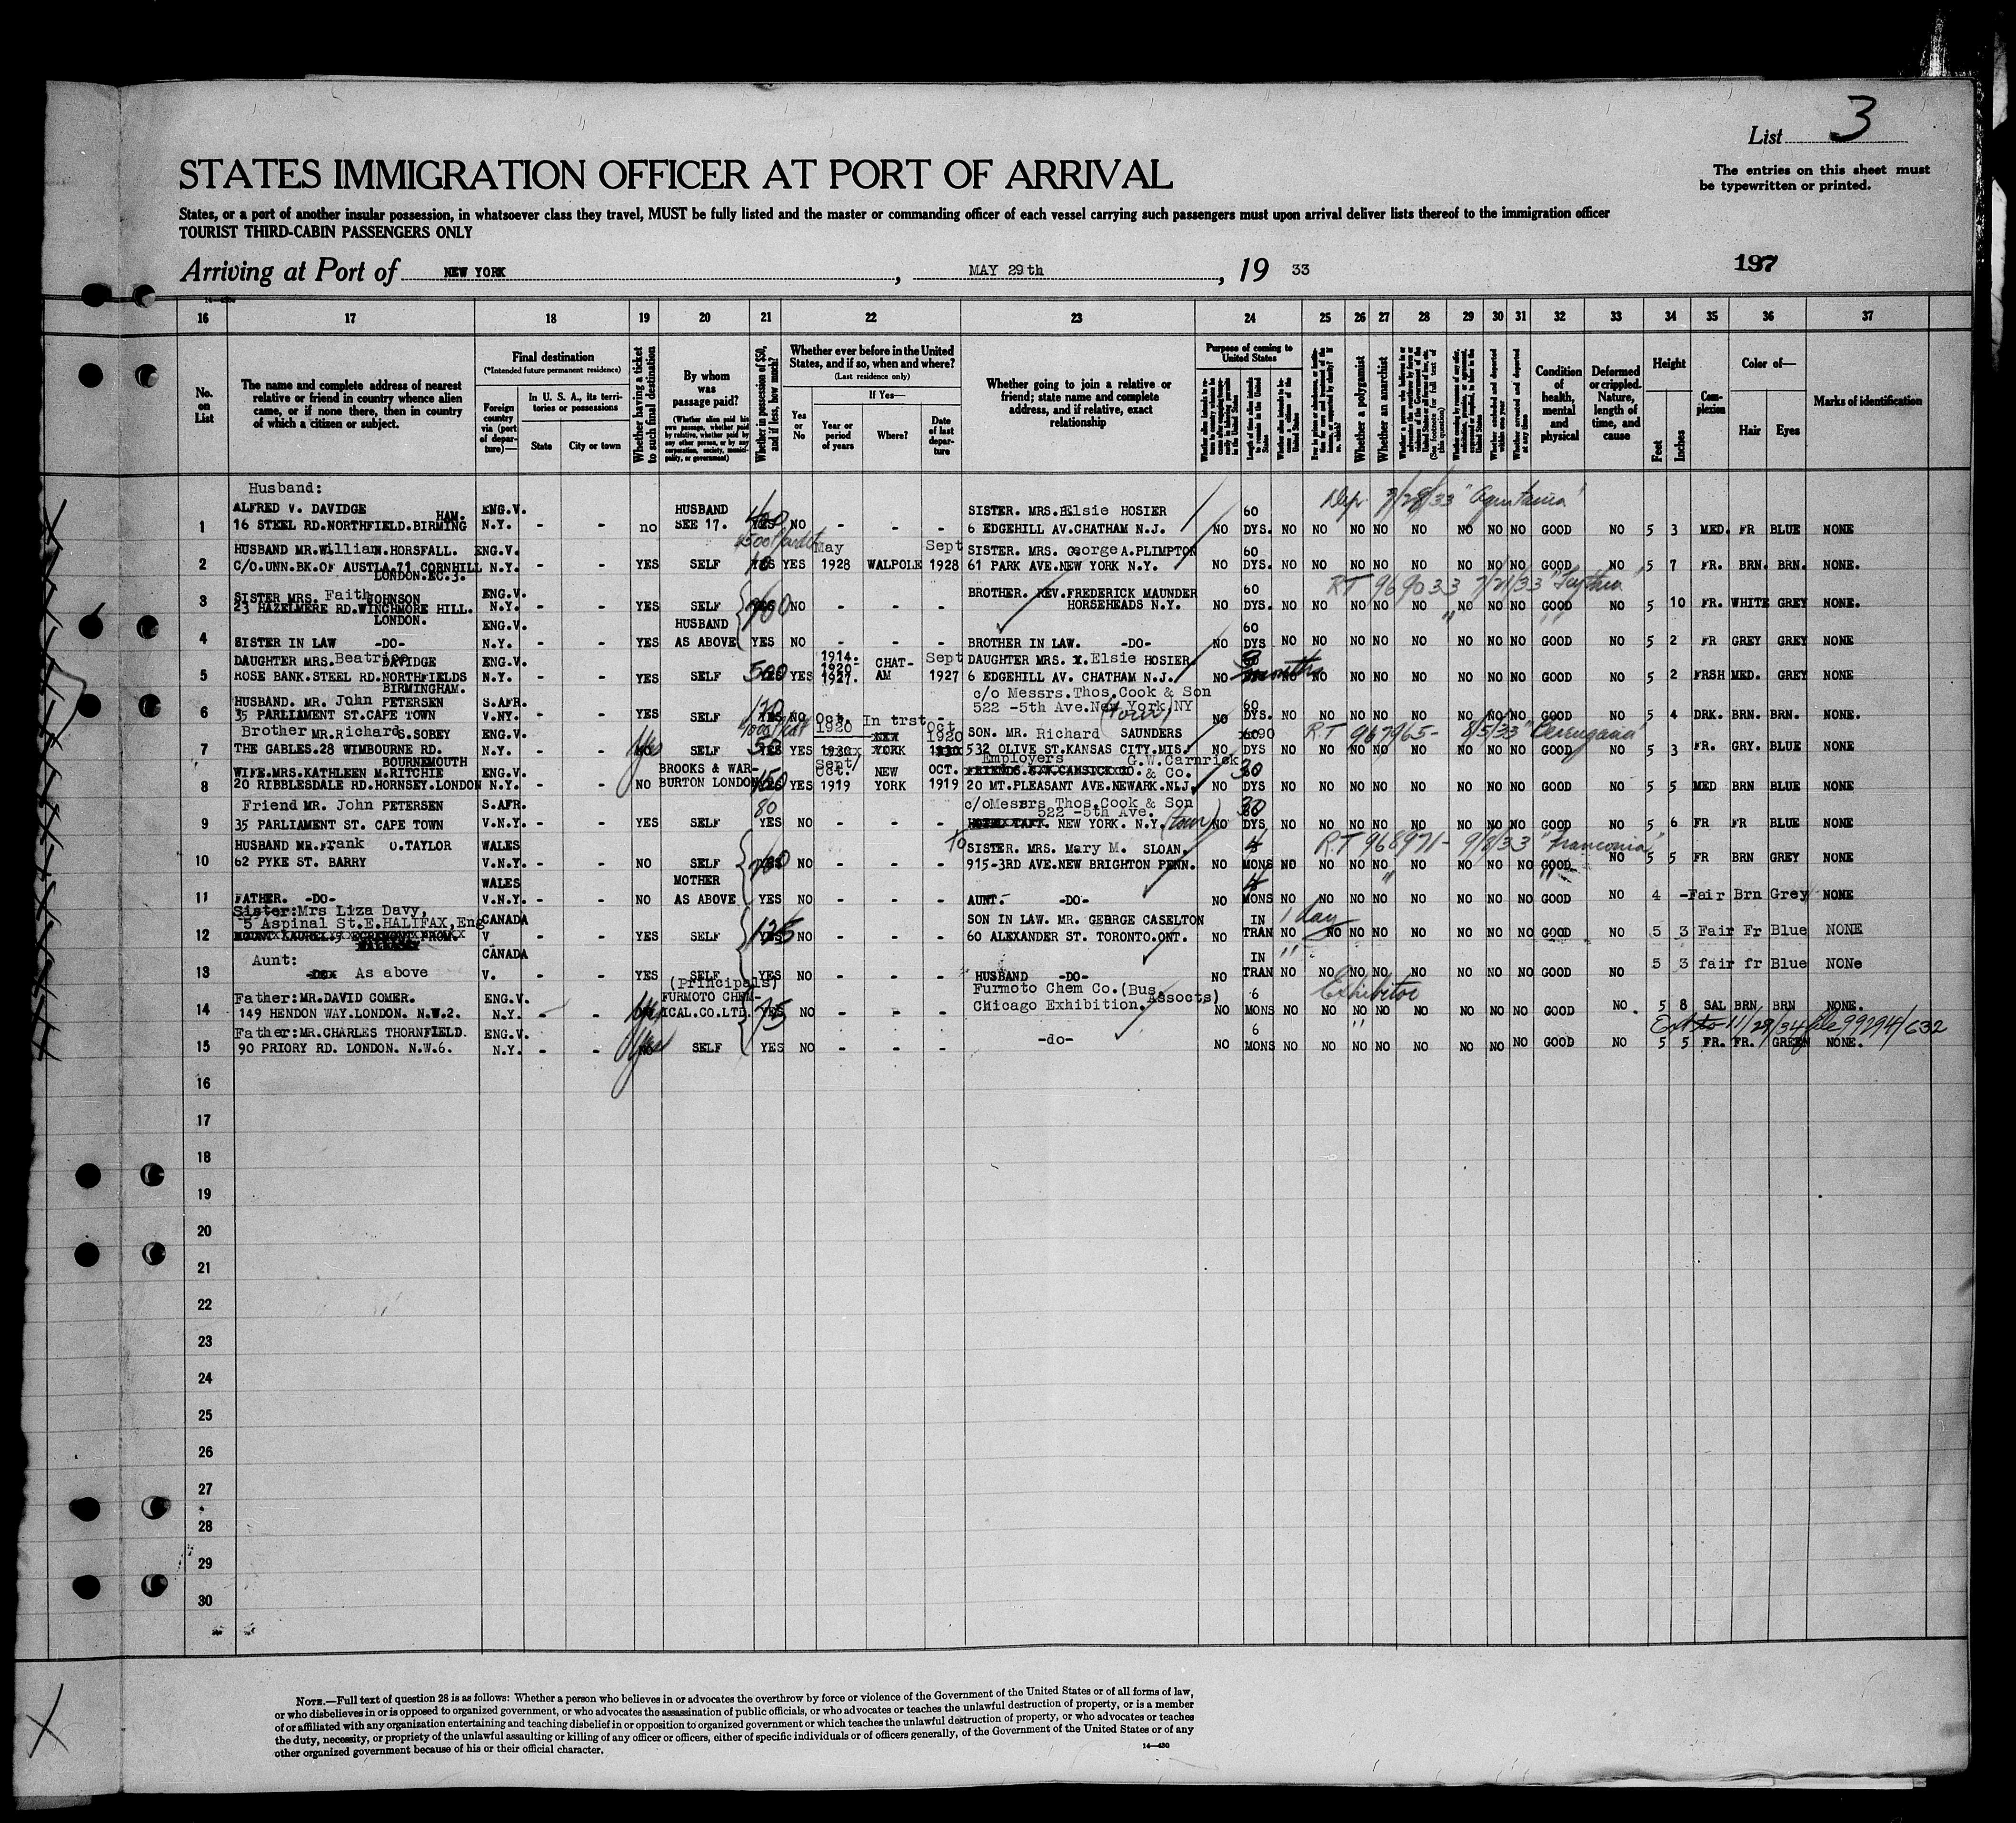 List 3
The entries on this sheet must
be typewritten or printed.
STATES IMMIGRATION OFFICER AT PORT OF ARRIVAL
States, or a port of another insular possession, in whatsoever class they travel, MUST be fully listed and the master or commanding officer of each vessel carrying such passengers must upon arrival deliver lists thereof to the immigration officer
TOURIST THIRD-CABIN PASSENGERS ONLY
Arriving at Port of NEW YORK, MAY 29th, 19 33
197
16 17 18 19 20 21 22 23 24 25 26 27 28 29 30 31 32 33 34 35 36 37
No. on List
The name and complete address of nearest relative or friend in country whence alien came, or if none there, then in country of which a citizen or subject.
Final destination
(*Intended future permanent residence)
Foreign country via (port of departure)—
In U. S. A., its territories or possessions
State
City or town
Whether having a ticket to such final destination
By whom was passage paid?
(Whether alien paid his own passage, whether paid by relative, whether paid by any other person, or by any corporation, society, municipality, or government)
Whether in possession of $50, and if less, how much?
Whether ever before in the United States, and if so, when and where?
(Last residence only)
Yes or No
If Yes—
Year or period of years
Where?
Date of last departure
Whether going to join a relative or friend; state name and complete address, and if relative, exact relationship
Purpose of coming to United States
Whether a polygamist
Whether an anarchist
Condition of health, mental and physical
Deformed or crippled. Nature, length of time, and cause
Height
Feet
Inches
Complexion
Color of—
Hair
Eyes
Marks of identification
Husband:
ALFRED V. DAVIDGE ENG.V. HUSBAND SISTER. MRS. Elsie HOSIER 60 7/28/33 "Aquitania"
1 16 STEEL RD.NORTHFIELD.BIRMINGHAM. N.Y. - - no SEE 17. YES NO - - - 6 EDGEHILL AV.CHATHAM N.J. NO DYS. NO NO NO NO NO NO NO NO GOOD NO 5 3 MED. FR BLUE NONE
HUSBAND MR.William.HORSFALL. ENG.V. May Sept SISTER. MRS. George A.PLIMPTON 60
2 C/O.UNN.BK.OF AUSTLA.71 CORNHILL N.Y. - - YES SELF YES YES 1928 WALPOLE 1928 61 PARK AVE.NEW YORK N.Y. NO DYS. NO NO NO NO NO NO NO NO GOOD NO 5 7 FR. BRN. BRN. NONE.
LONDON.EC.3.
SISTER MRS. Faith JOHNSON ENG.V. BROTHER. REV.FREDERICK MAUNDER 60 RT 969033 7/21/33
3 23 HAZELMERE RD.WINCHMORE HILL. N.Y. - - YES SELF NO - - - HORSEHEADS N.Y. NO DYS. NO NO NO NO NO NO NO NO GOOD NO 5 10 FR. WHITE GREY NONE.
LONDON. ENG.V. HUSBAND 60
4 SISTER IN LAW -DO- N.Y. - - YES AS ABOVE YES NO - - - BROTHER IN LAW. -DO- NO DYS NO NO NO NO NO NO NO NO GOOD NO 5 2 FR GREY GREY NONE
DAUGHTER MRS.Beatrice DAVIDGE ENG.V. 1914. 1920 CHAT- Sept DAUGHTER MRS. Elsie HOSIER.
5 ROSE BANK.STEEL RD.NORTHFIELDS N.Y. - - YES SELF 500 YES 1927. AM 1927 6 EDGEHILL AV. CHATHAM N.J. NO months NO NO NO NO NO NO NO NO GOOD NO 5 2 FRSH MED. GREY NONE
BIRMINGHAM. c/o Messrs.Thos.Cook & Son
HUSBAND. MR. John PETERSEN S.AFR. 522 -5th Ave.New York NY 60
6 35 PARLIAMENT ST.CAPE TOWN V.NY. - - YES SELF YES NO - (tour) NO DYS. NO NO NO NO NO NO NO NO GOOD NO 5 4 DRK. BRN. BRN. NONE.
Brother MR.Richard S.SOBEY ENG.V. Oct. 1920 In trst Oct 1920 SON. MR. Richard SAUNDERS 90 RT 967965- 8/5/33
7 THE GABLES.28 WIMBOURNE RD. N.Y. - - Yes SELF 50 YES YES YORK 532 OLIVE ST.KANSAS CITY.MIS. NO DYS NO NO NO NO NO NO NO NO GOOD NO 5 3 FR. GRY. BLUE NONE
BOURNEMOUTH BROOKS & WAR- Sept/ Employers G.W.Carnrick
WIFE.MRS.KATHLEEN M.RITCHIE ENG.V. BURTON LONDON Oct. NEW OCT. & Co. 30
8 20 RIBBLESDALE RD.HORNSEY.LONDON N.Y. - - NO 150 YES 1919 YORK 1919 20 MT.PLEASANT AVE.NEWARK.N.J. NO DYS NO NO NO NO NO NO NO NO GOOD NO 5 5 MED BRN BLUE NONE
Friend MR. John PETERSEN S.AFR. 80 c/oMessrs Thos.Cook & Son 30
522 -5th Ave.
9 35 PARLIAMENT ST. CAPE TOWN V.N.Y. - - YES SELF YES NO - - - NEW YORK. N.Y. (tour) NO DYS NO NO NO NO NO NO NO NO GOOD NO 5 6 FR FR BLUE NONE
HUSBAND MR.Frank O.TAYLOR WALES To SISTER. MRS. Mary M. SLOAN. 4 RT 968971- 9/8/33 "Franconia"
10 62 PYKE ST. BARRY V.N.Y. - - NO SELF NO - - - 915-3RD AVE.NEW BRIGHTON PENN. NO MONS NO NO NO NO NO NO NO NO GOOD NO 5 5 FR BRN GREY NONE
WALES MOTHER 4
11 FATHER. -DO- V.N.Y. - - NO AS ABOVE YES NO - - - AUNT. -DO- NO MONS NO NO NO NO NO NO NO NO GOOD NO 4 - Fair Brn Grey NONE
Sister:Mrs Liza Davy,
5 Aspinal St.E.HALIFAX,Eng CANADA SON IN LAW. MR. GEORGE CASELTON IN 1 day
12 V - - YES SELF 125 NO - - - 60 ALEXANDER ST. TORONTO.ONT. NO TRAN NO NO NO NO NO NO NO NO GOOD NO 5 3 Fair Fr Blue NONE
Aunt: CANADA IN "
13 As above V. - - YES SELF YES NO - - - HUSBAND -DO- NO TRAN NO NO NO NO NO NO NO NO GOOD NO 5 3 fair fr Blue NONe
(Principals) Furmoto Chem Co.(Bus
Father:MR.DAVID COMER. ENG.V. FURMOTO CHEM- Chicago Exhibition. Assocts) 6 Exhibitor
14 149 HENDON WAY.LONDON. N.W.2. N.Y. - - ICAL.CO.LTD. 75 NO - - - NO MONS NO NO NO NO NO NO NO NO GOOD NO. 5 8 SAL BRN BRN NONE.
Father:MR.CHARLES THORNFIELD. ENG.V. 6 " Ext to 11/29/34 file 99294/632
15 90 PRIORY RD. LONDON. N.W.6. N.Y. - - Yes SELF YES NO - - - -do- NO MONS NO NO NO NO NO NO NO NO GOOD NO 5 5 FR. FR. GREEN NONE.
16
17
18
19
20
21
22
23
24
25
26
27
28
29
30
NOTE.—Full text of question 28 is as follows: Whether a person who believes in or advocates the overthrow by force or violence of the Government of the United States or of all forms of law,
or who disbelieves in or is opposed to organized government, or who advocates the assassination of public officials, or who advocates or teaches the unlawful destruction of property, or is a member
of or affiliated with any organization entertaining and teaching disbelief in or opposition to organized government or which teaches the unlawful destruction of property, or who advocates or teaches
the duty, necessity, or propriety of the unlawful assaulting or killing of any officer or officers, either of specific individuals or of officers generally, of the Government of the United States or of any
other organized government because of his or their official character.
14—430